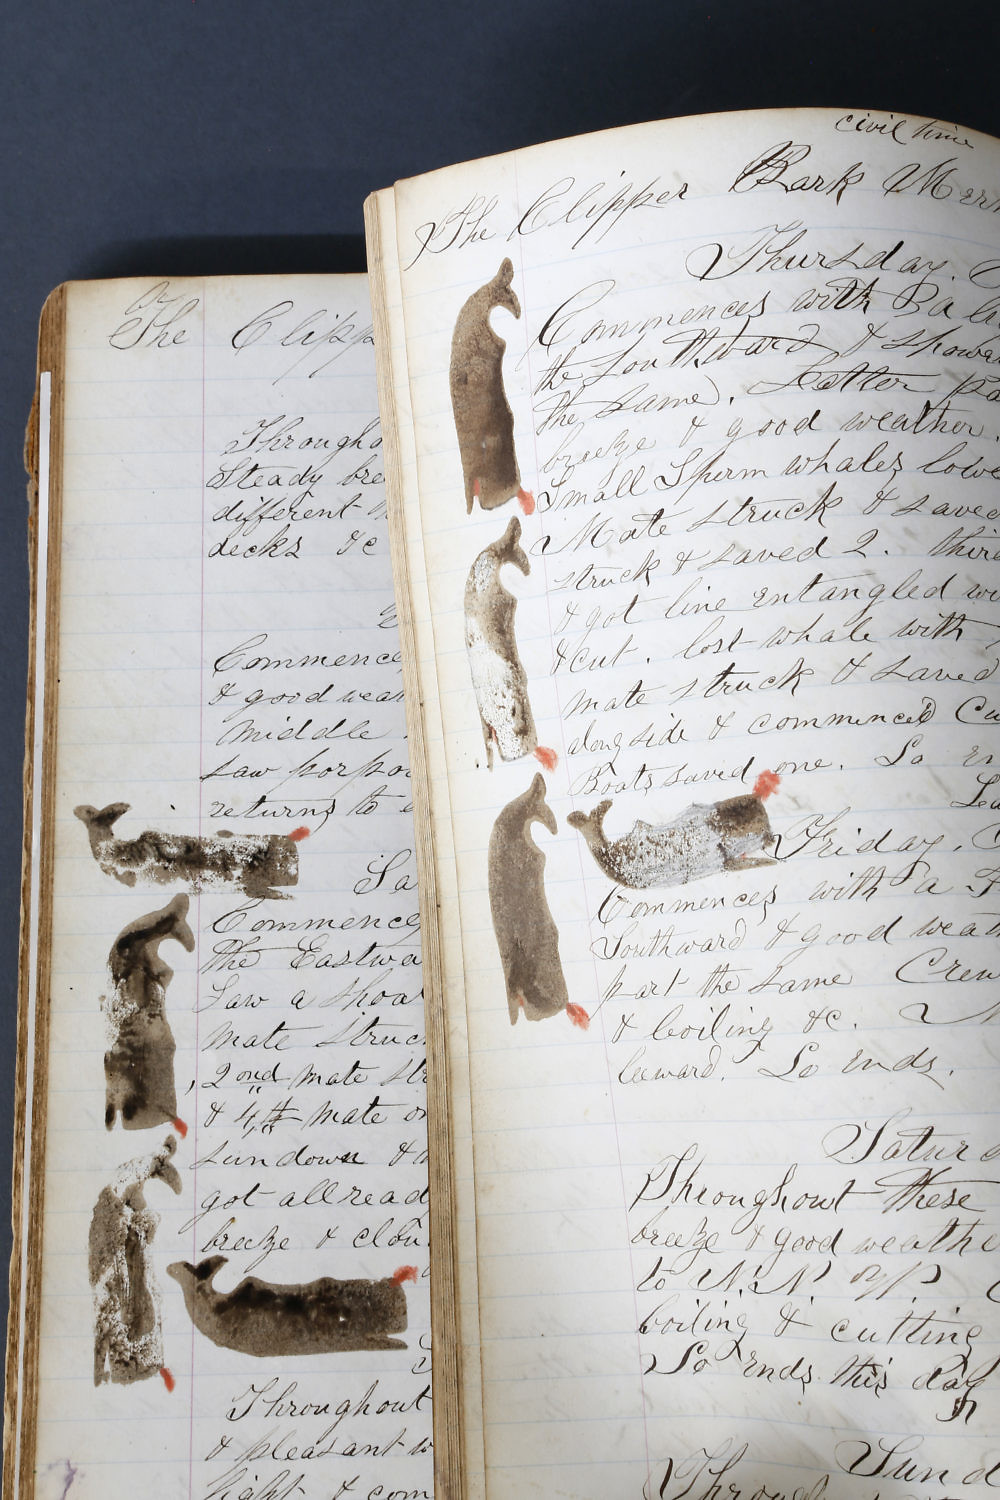 The Clipp
Througho
Steady bre
different
decks &c
Commence
& good weat
Middle
saw porpoi
returns to
Sa
Commences
the Eastwa
Saw a shoal
mate struc
2ond mate str
& 4th mate
sundown &
got all read
breeze & clou
Throughout
& pleasant w
light & com
civil time
The Clipper Bark Mer
Thursday.
Commences with a
the Southward & shower
the same. Latter pa
breeze & good weather.
Small Sperm whales lowe
Mate struck & saved
struck & saved 2. third
& got line entangled wi
& cut. lost whale with
mate struck & saved
along side & commenced Cu
Boats saved one. So en
Friday.
Commences with a
Southward & good weat
part the same Crew
& boiling &c.
leeward. So ends.
Saturd
Throughout these
breeze & good weathe
to
boiling & cutting
So ends this day
Sund
Through